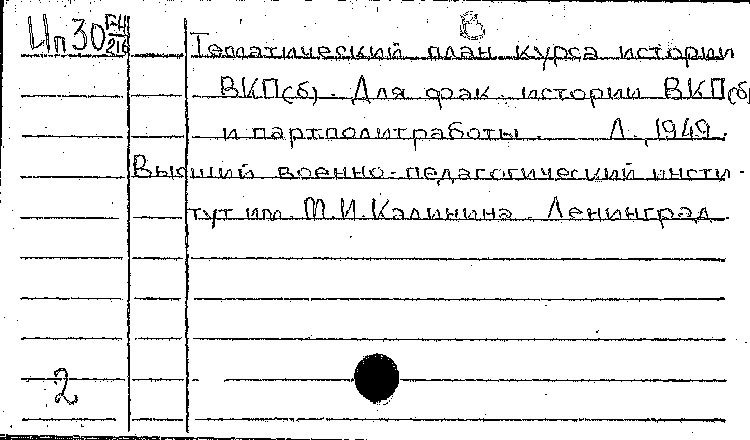 В
Ип30 Г-4/216
Тематический план курса истории
ВКП(б). Для фак. истории ВКП(б)
и партполитработы. Л., 1949.
Высший военно-педагогический инсти-
тут им. М.И.Калинина. Ленинград
2